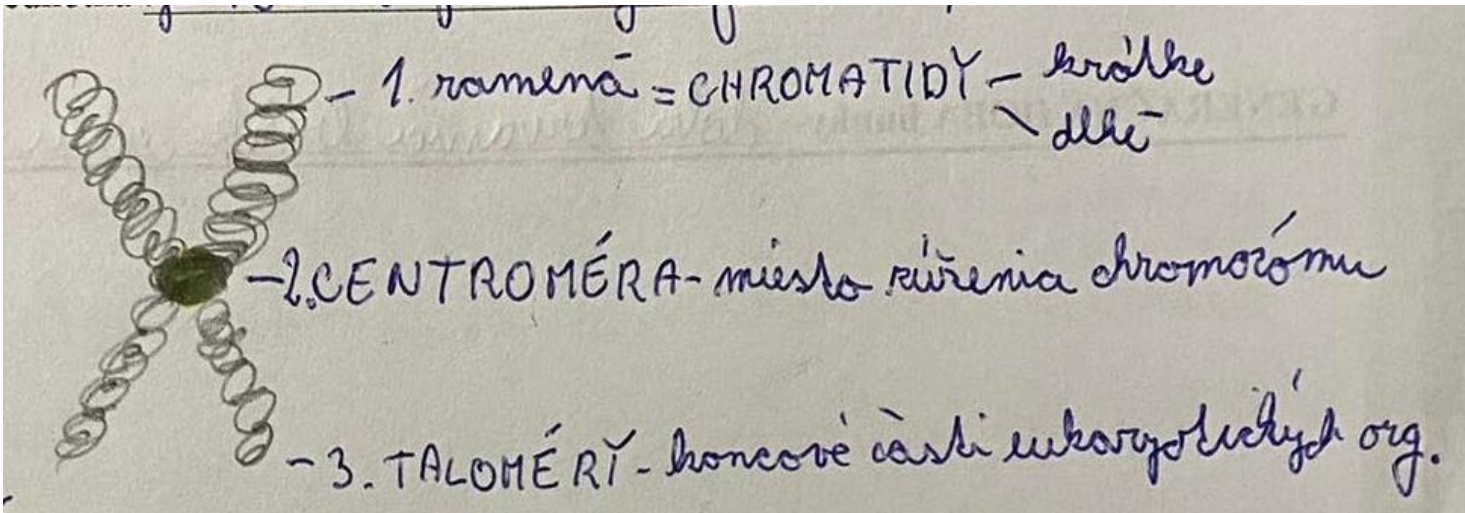 - 1. ramená = CHROMATIDY - krátke
\ dlhé
-2. CENTROMÉRA - miesto zúženia chromozómu
-3. TALOMÉRY - koncové časti eukaryotických org.